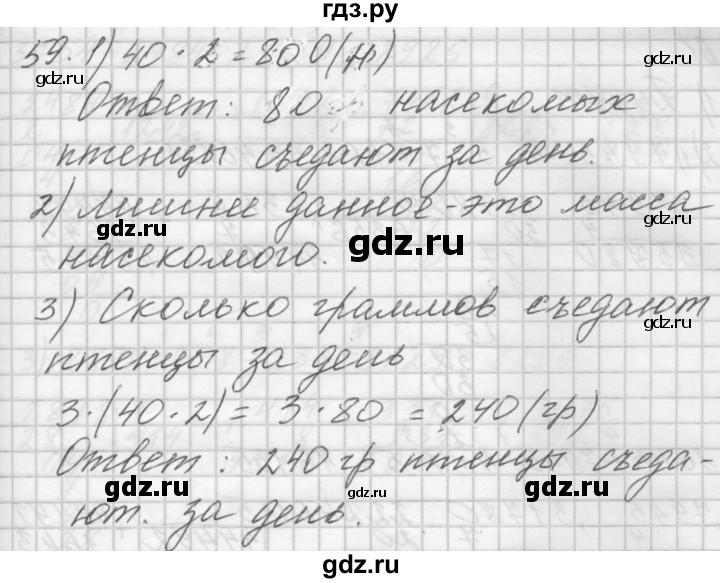 гдз.ру
59. 1) 40 · 2 = 80 (н)
Ответ: 80 насекомых
птенцы съедают за день.
gdz.ru
2) Лишнее данное - это масса
gdz.ru
gdz.ru
насекомого.
gdz.ru
3) Сколько граммов съедают
gdz.ru
птенцы за день
3 · (40 · 2) = 3 · 80 = 240 (гр)
Ответ: 240 гр птенцы съеда-
gdz.ru
gdz.ru
gdz.ru
ют. за день.
gdz.ru